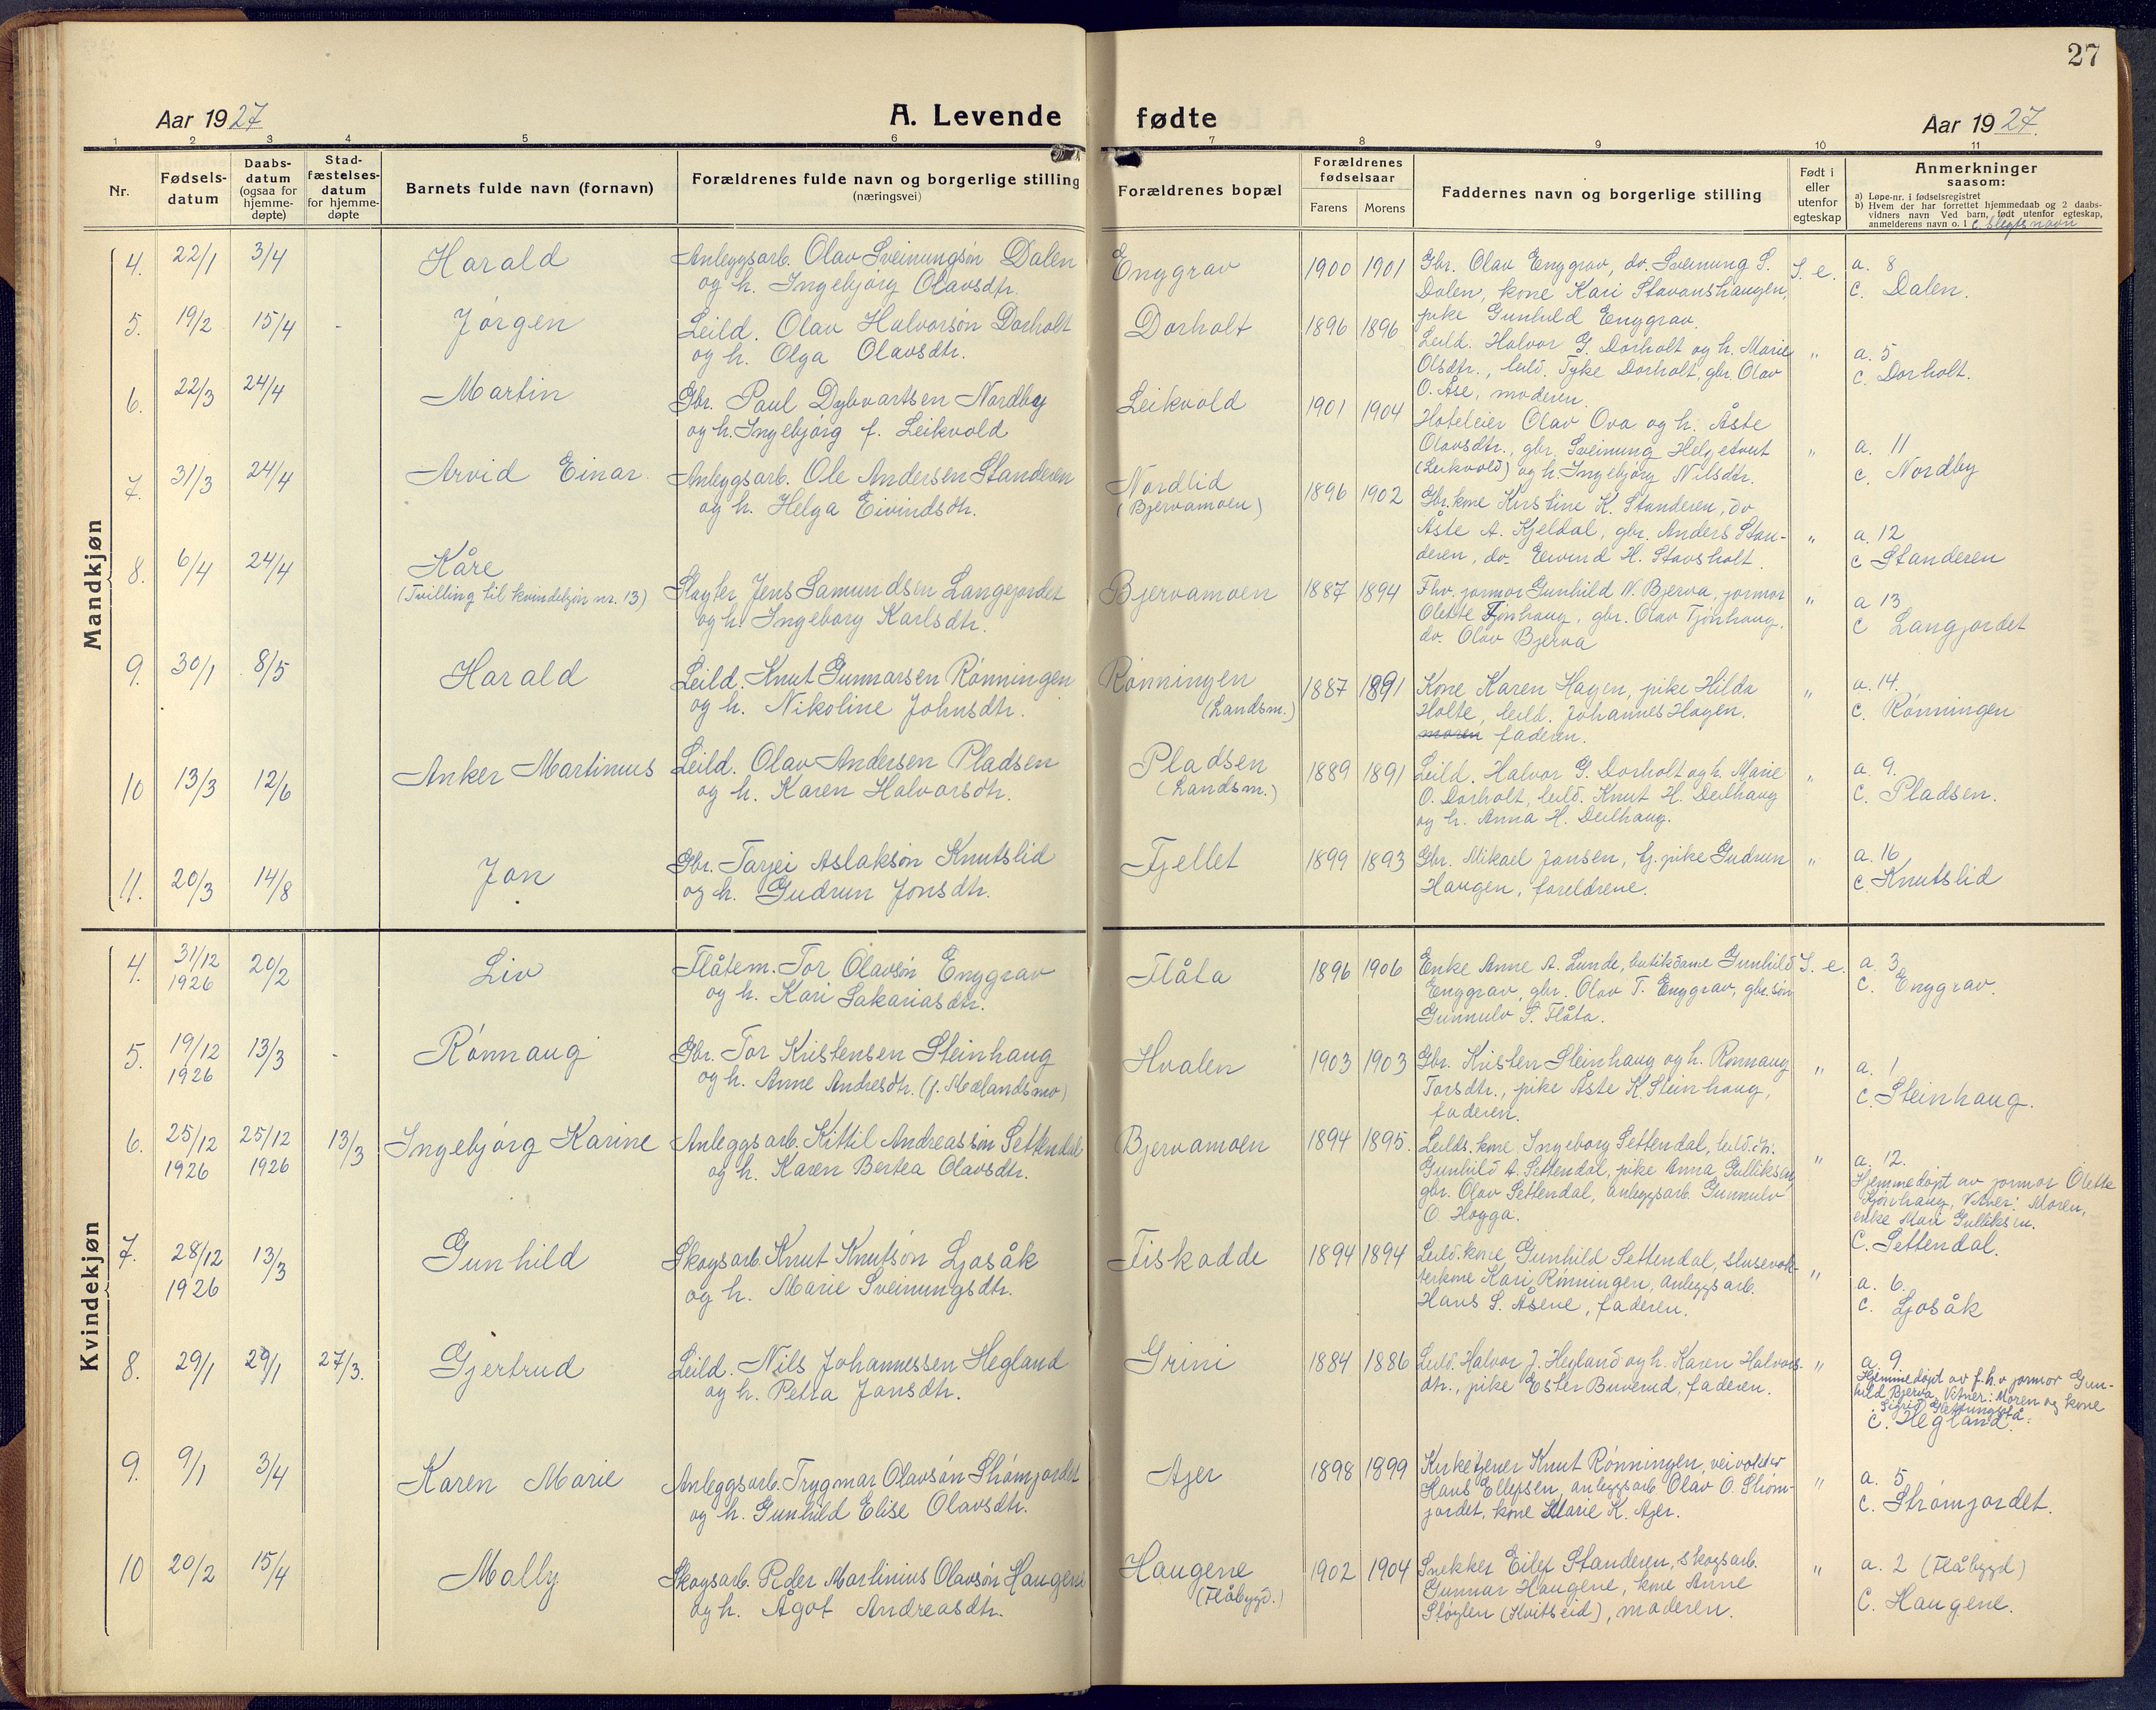 27
Aar 1927
A. Levende fødte
Aar 1927.
1 2 3 4 5 6 7 8 9 10 11
Nr.
Fødsels-
datum
Daabs-
datum
(ogsaa for
hjemme-
døpte)
Stad-
fæstelses-
datum
for hjemme-
døpte
Barnets fulde navn (fornavn)
Forældrenes fulde navn og borgerlige stilling
(næringsvei)
Forældrenes bopæl
Forældrenes
fødselsaar
Farens Morens
Faddernes navn og borgerlige stilling
Født i
eller
utenfor
egteskap
Anmerkninger
saasom:
a) Løpe-nr. i fødselsregistret
b) Hvem der har forrettet hjemmedaab og 2 daabs-
vidners navn Ved barn, født utenfor egteskap,
anmelderens navn o. l. c. Slegtsnavn
Mandkjøn
4. 22/1 3/4 Harald
Anleggsarb. Olav Sveinungsøn Dalen
og h. Ingebjørg Olavsdtr.
Enggrav 1900 1901
Gbr. Olav Enggrav, do. Sveinung S.
Dalen, kone Kari Stavanshaugen,
pike Gunhild Enggrav.
I. e.
a. 8
c. Dalen.
5. 19/2 15/4 - Jørgen
Leild. Olav Halvorsøn Dorholt
og h. Olga Olavsdtr.
Dorholt 1896 1896
Leild. Halvor G. Dorholt og h. Marie
Olsdtr., leild. Tyke Dorholt, gbr. Olav
O. Åse, moderen.
"
a. 5
c. Dorholt.
6. 22/3 24/4 Martin
Gbr. Paul Dybvartsen Nordby
og h. Ingebjørg f. Leikvold
Leikvold 1901 1904
Hoteleier Olav Ova og h. Åste
Olavsdtr., gbr. Sveinung Helgetveit
(Leikvold) og h. Ingebjørg Nilsdtr.
"
a. 11
c. Nordby
7. 31/3 24/4 Arvid Einar
Anleggsarb. Ole Andersen Standeren
og h. Helga Eivindsdtr.
Nordlid
(Bjervamoen)
1896 1902
Gbr.kone Kirstine K. Standeren, do
Åste A. Kjeldal, gbr. Anders Stan-
deren, do. Eivind H. Stavsholt.
"
a. 12
c Standeren
8. 6/4 24/4 Kåre
(Tvilling til kvindekjøn nr. 13)
Slagter Jens Samundsen Langejordet
og h. Ingeborg Karlsdtr.
Bjervamoen 1887 1894
Fhv. jormor Gunhild N. Bjerva, jormor
Olette Tjønhaug, gbr. Olav Tjønhaug,
do. Olav Bjerva
"
a 13
c Langjordet
9. 30/1 8/5 Harald
Leild. Knut Gunnarsen Rønningen
og h. Nikoline Johnsdtr.
Rønningen
(Landsm.)
1887 1891
Kone Karen Hagen, pike Hilda
Holte, leild. Johannes Hagen.
moren faderen.
"
a. 14.
c. Rønningen
10 13/3 12/6 Anker Martinius
Leild. Olav Andersen Pladsen
og h. Karen Halvorsdtr.
Pladsen
(Landsm.)
1889 1891
Leild. Halvor G. Dorholt og h. Marie
O. Dorholt, leild. Knut H. Deilhaug
og h. Anna H. Deilhaug.
"
a. 9.
c. Pladsen.
11. 20/3 14/8 Jon
Gbr. Tarjei Aslaksøn Knutslid
og h. Gudrun Jonsdtr.
Fjellet 1899 1893
Gbr. Mikael Jansen, tj. pike Gudrun
Haugen, foreldrene.
"
a. 16
c. Knutslid
Kvindekjøn
4. 31/12
1926
20/2 Liv
Flåtem. Tor Olavsøn Enggrav
og h. Kari Sakariasdtr.
Flåta 1896 1906
Enke Anne A. Lunde, butikdame Gunhild
Enggrav, gbr. Olav T. Enggrav, gbr.søn
Gunnulv S. Flåta.
I. e.
a. 3
c. Enggrav.
5. 19/12
1926
13/3 - Rønnaug
Gbr. Tor Kristensen Steinhaug
og h. Anne Andresdtr. (f. Mælandsmo)
Hvalen 1903 1903
Gbr. Kristen Steinhaug og h. Rønnaug
Torsdtr., pike Åste K. Steinhaug,
faderen.
"
a. 1
c. Steinhaug.
6. 25/12
1926
25/12
1926
13/3 Ingebjørg Karine
Anleggsarb. Kittil Andreassøn Settendal
og h. Karen Bertea Olavsdtr.
Bjervamoen 1894 1895.
Leilds.kone Ingeborg Settendal, leild.
Gunhild A. Settendal, pike Anna Gulliksen,
gbr. Olav Settendal, anleggsarb. Gunnulv
O. Hogga.
"
a. 12.
Hjemmedøpt av jormor Olette
Tjønhaug, Vitner: Moren,
enke Mari Gulliksen.
C. Settendal.
7. 28/12
1926
13/3 Gunhild
Skogsarb. Knut Knutsøn Ljosåk
og h. Marie Sveinungsdtr.
Fiskodde 1894 1894
Leild.kone Gunhild Settendal, slusevok-
terkone Kari Rønningen, anleggsarb.
Hans S. Åsene, faderen.
"
a. 6.
c. Ljosåk
8. 29/1 29/1 27/3. Gjertrud
Leild. Nils Johannessen Hegland
og h. Petra Jansdtr.
Grini 1884 1886
Leild. Halvor J. Hegland og h. Karen Halvors-
dtr., pike Ester Buverud, faderen.
"
a. 9.
Hjemmedøpt av f.h.v jormor Gun-
hild Bjerva, Vitner: Moren og kone
Sigrid
c. Hegland.
9. 9/1 3/4 Karen Marie
Anleggsarb. Trygmar Olavsøn Strømjordet
og h. Gunhild Elise Olavsdtr.
Ajer 1898 1899
Kirketjener Knut Rønningen, veivokter
Hans Ellefsen, anleggsarb Olav O. Strøm-
jordet, kone Marie K. Ajer.
"
a. 5
c. Strømjordet.
10 20/2 15/4 Molly
Skogsarb. Peder Martinius Olavsøn Haugene
og h. Ågot Andreasdtr.
Haugene
(Flåbygd.)
1902 1904
Snekker Eilef Standeren, skogsarb.
Gunnar Haugene, kone Anne
Støylen (Kvitseid), moderen.
"
a. 2 (Flåbygd)
C. Haugene.